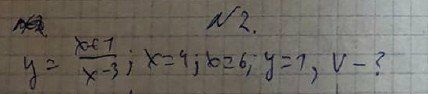 N 2.
y = x+1 / x-3 ; x=4; x=6; y=1, V - ?